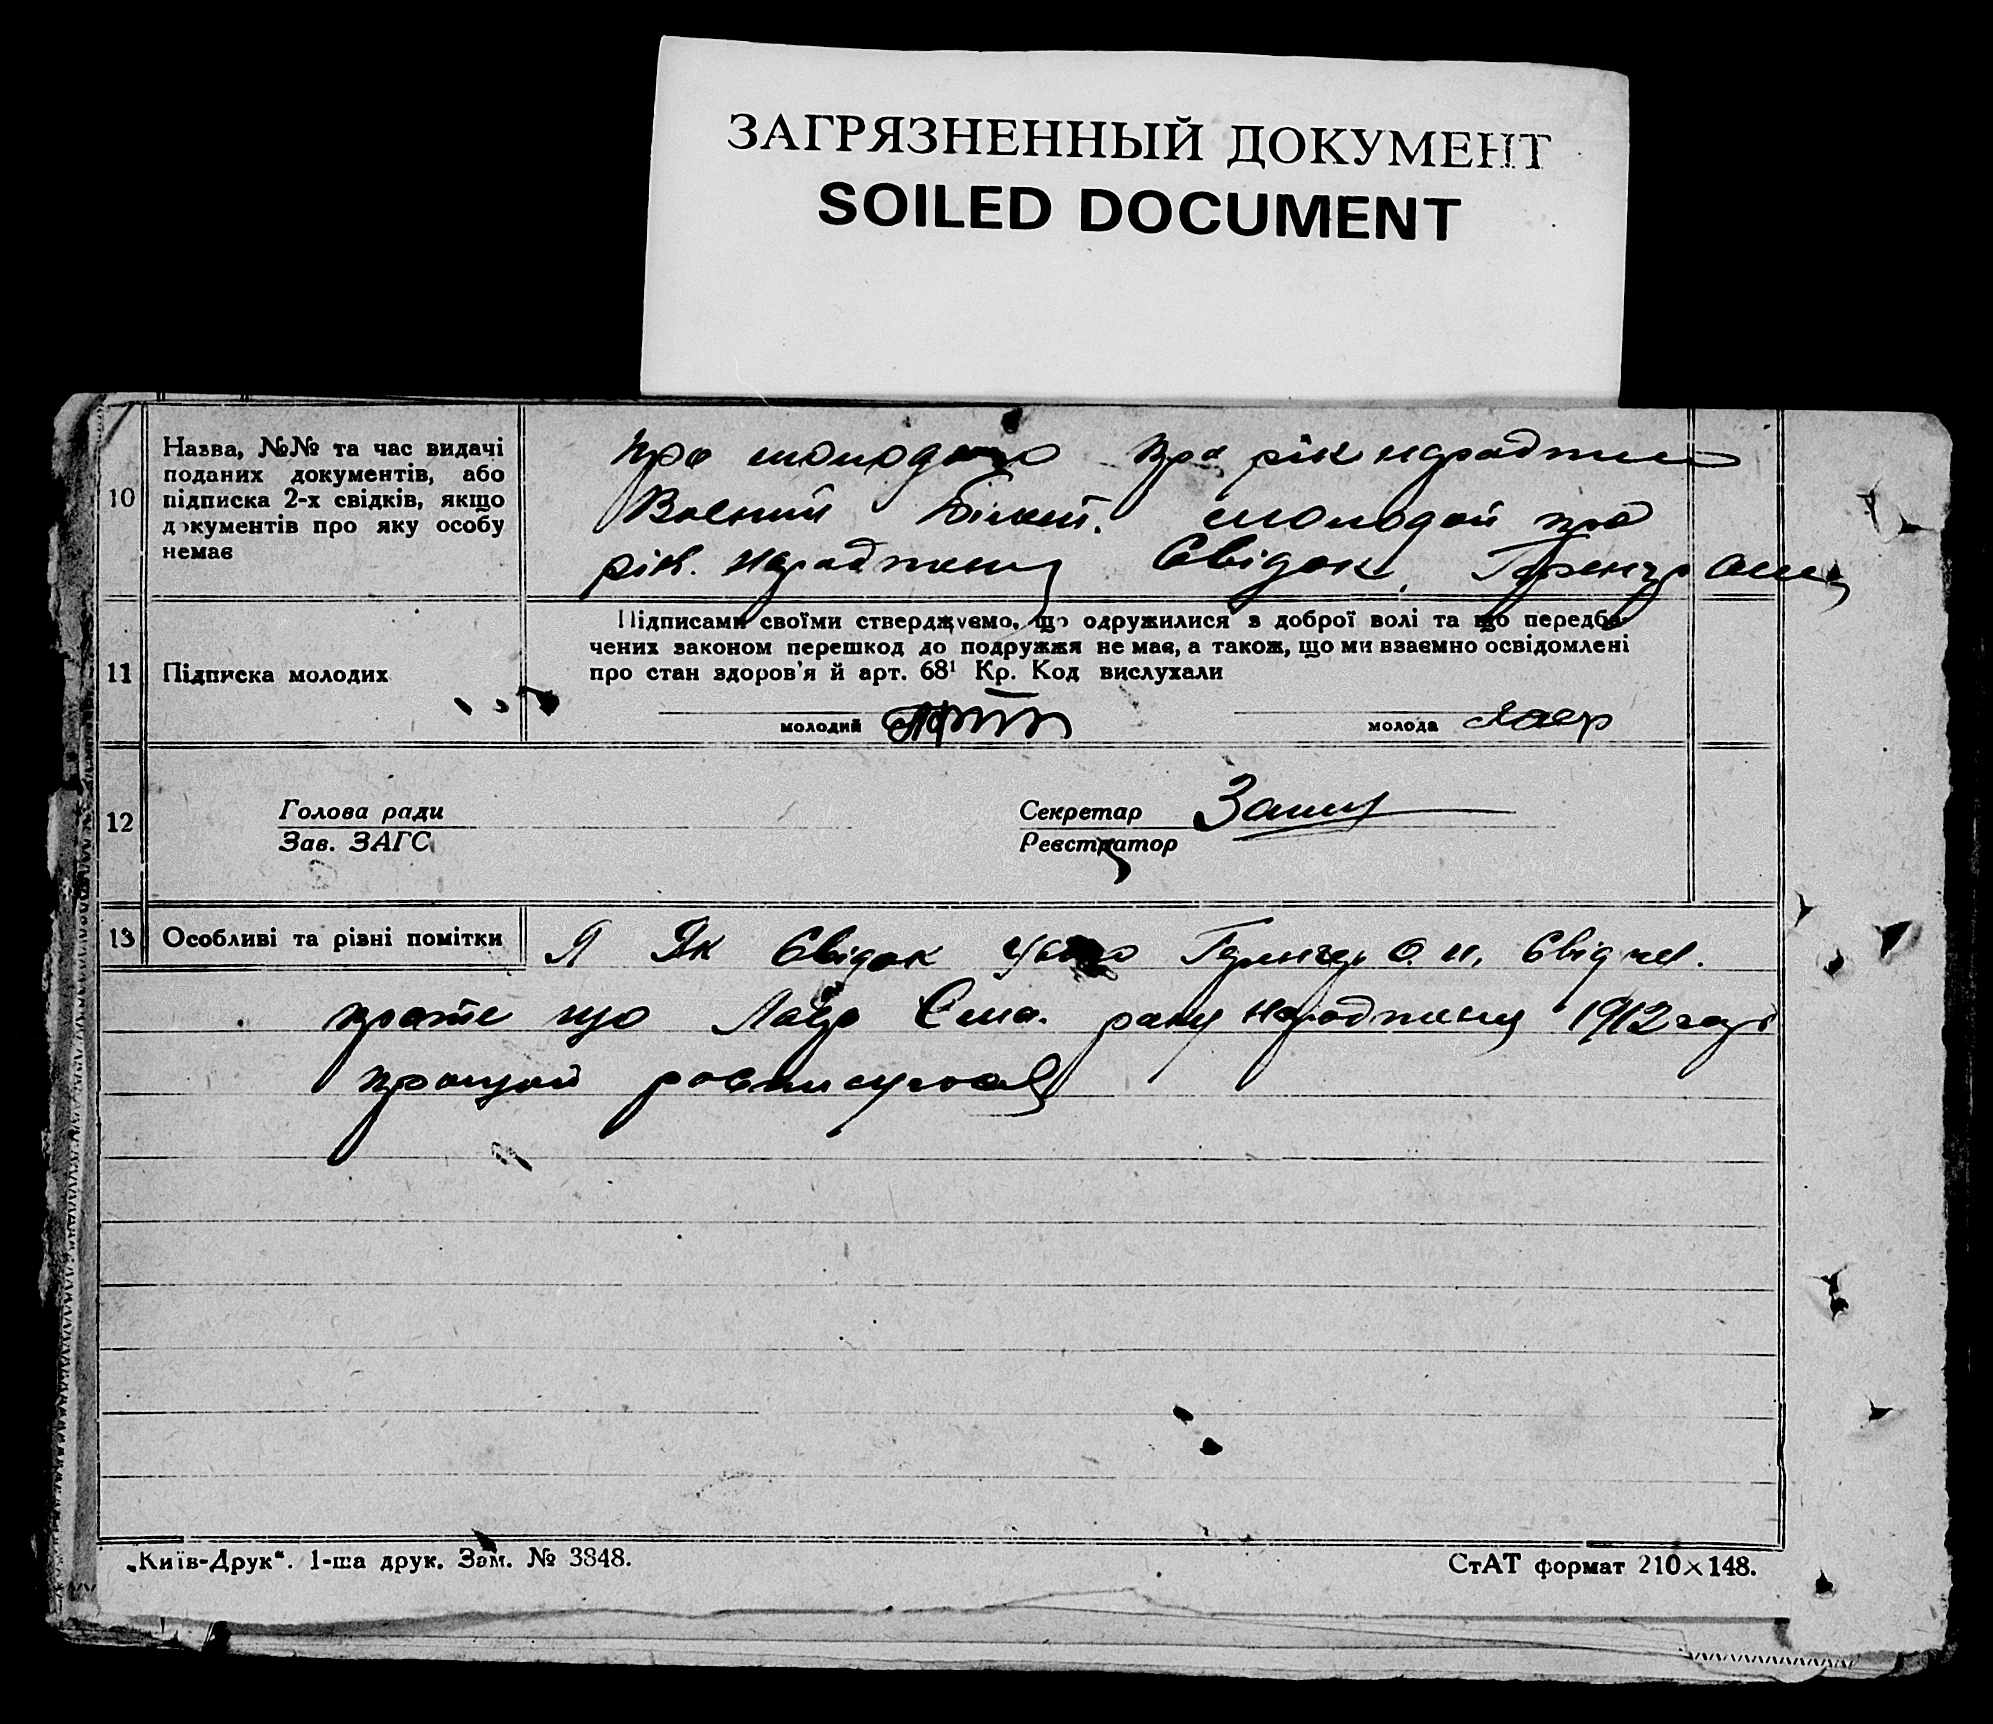 ЗАГРЯЗНЕННЫЙ ДОКУМЕНТ
SOILED DOCUMENT
10
Назва, №№ та час видачі
поданих документів, або
підписка 2-х свідків, якщо
документів про яку особу
немає
про молодого про рік народжен
Воєний білет. молодой про
рік. народжену Свідок
11
Підписка молодих
Підписами своїми стверджуємо, що одружилися з доброї волі та що передба-
чених законом перешкод до подружжя не має, а також, що ми взаємно освідомлені
про стан здоров'я й арт. 68¹ Кр. Код вислухали
молодий
молода
12
Голова ради
Зав. ЗАГС
Секретар
Реєстратор
13
Особливі та різні помітки
Я Як Свідок О. И. Свідчу.
що року народжену 1912
„Київ-Друк“. 1-ша друк. Зам. № 3848.
СтАТ формат 210×148.